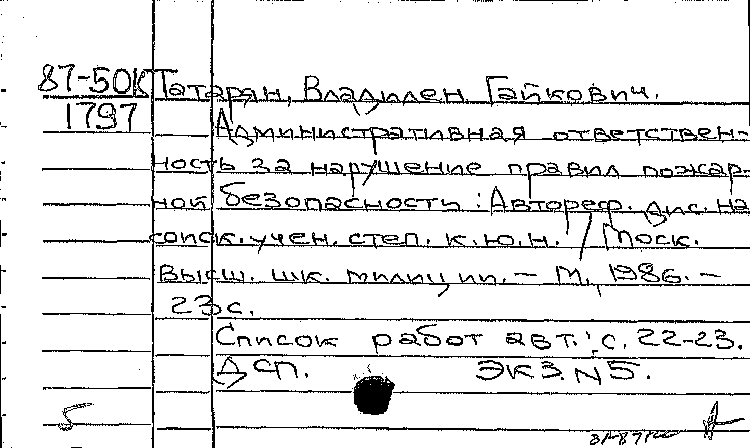 87-50К Татарян, Владилен Гайкович.
1797
Административная ответствен-
ность за нарушение правил пожар-
ной безопасности : Автореф. дис. на
соиск. учен. степ. к.ю.н. / Моск.
Высш. шк. милиции. – М., 1986. –
23 с.
Список работ авт.: с. 22-23.
ДСП. ЭКЗ. N5.
5